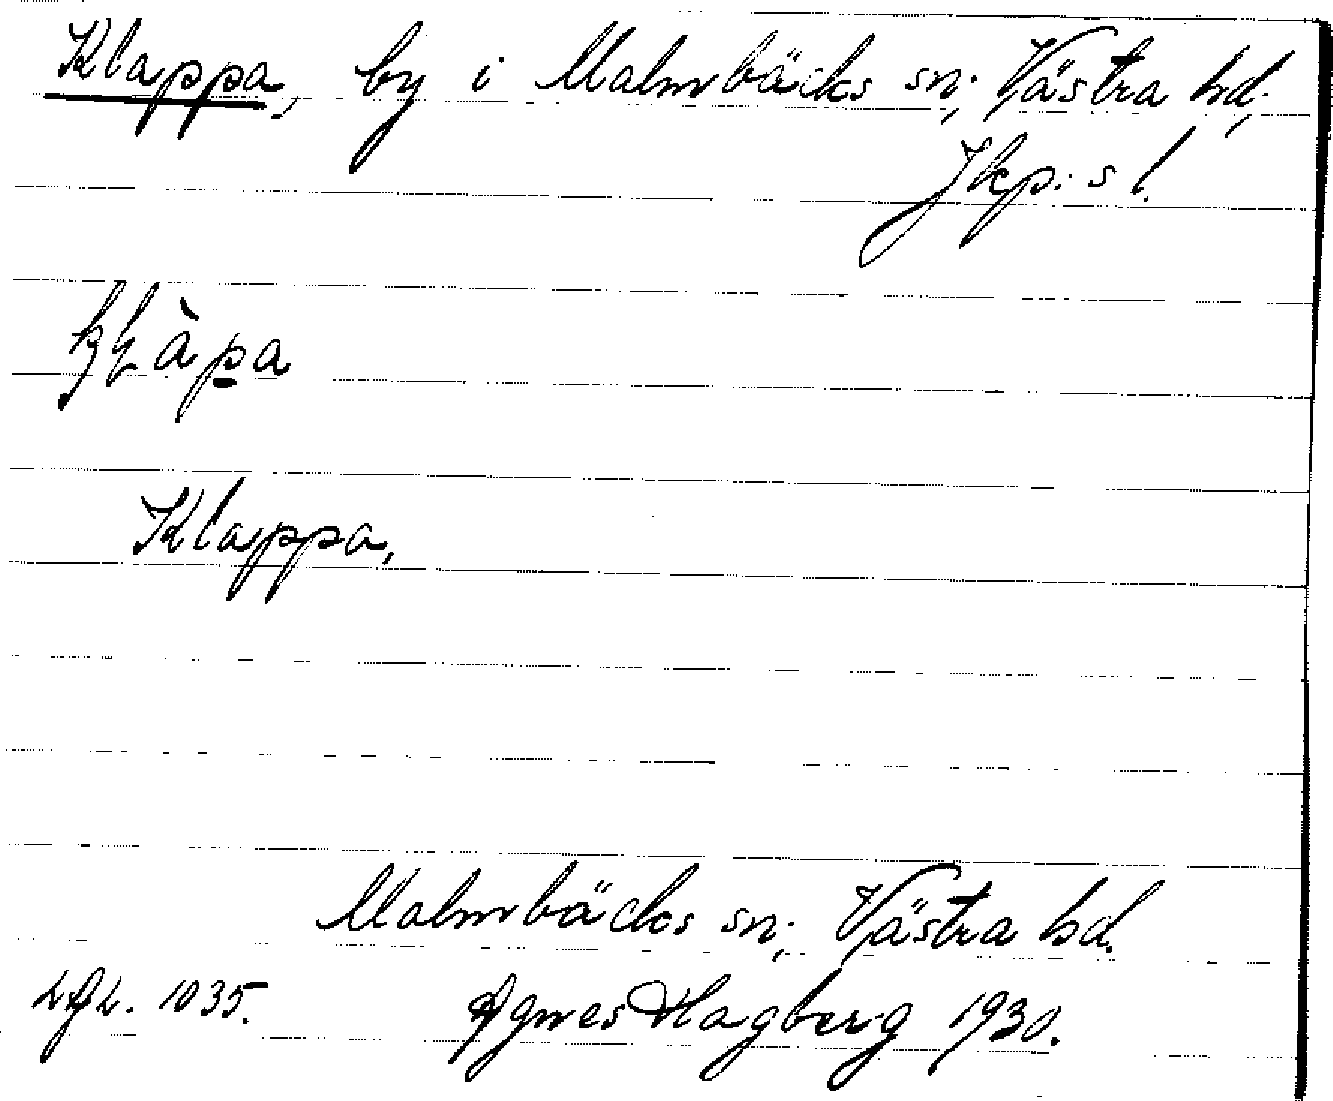 Klappa, by i Malmbäcks sn; Västra hd,
Jkp:s l.
Klappa,
Malmbäcks sn; Västra hd.
Agnes Hagberg 1930.